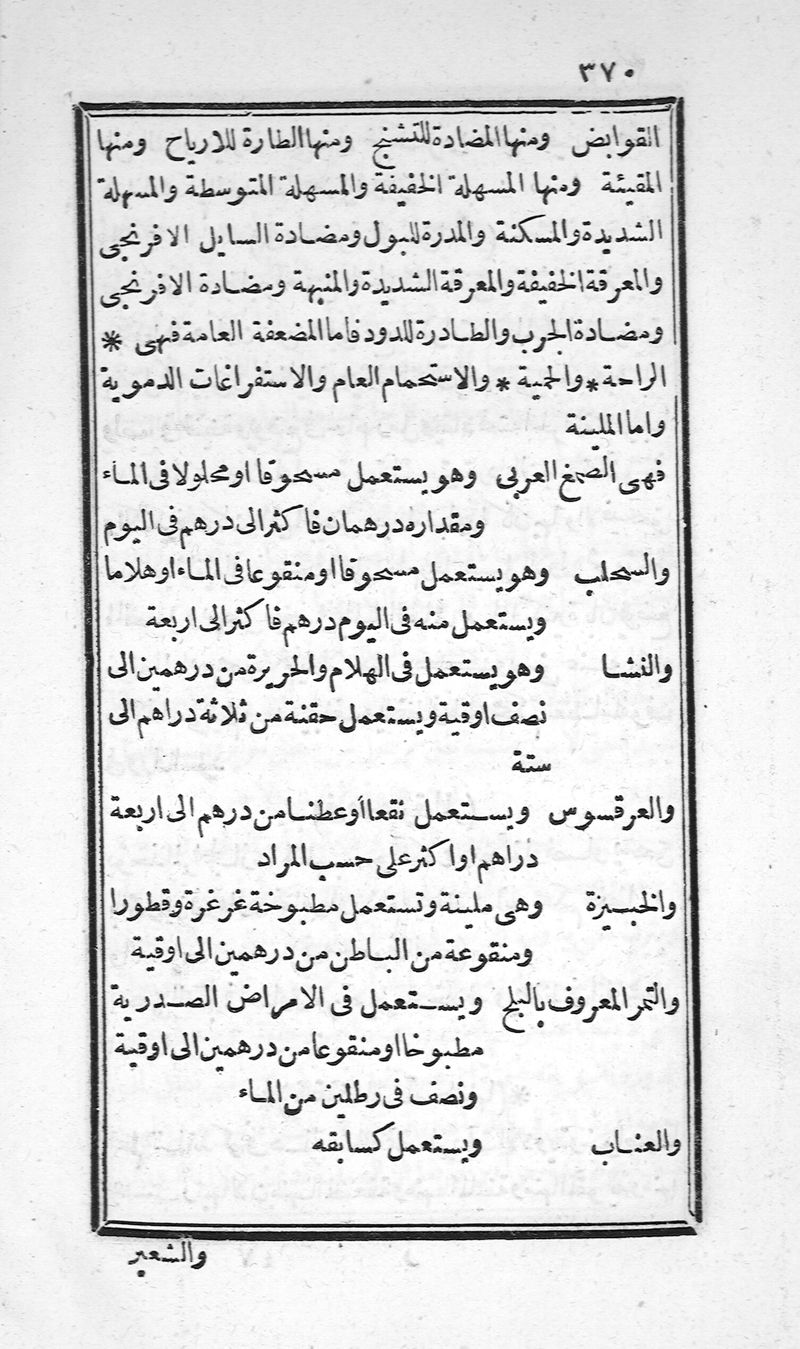 ٣٧٠
القوابض ومنها المضادة للتشنج ومنها الطارة للارياح ومنها
المقيئة ومنها المسهلة الخفيفة والمسهلة المتوسطة والمسهلة
الشديدة والمسكنة والمدرة للبول ومضادة السايل الافرنجى
والمعرقة الخفيفة والمعرقة الشديدة والمنبهة ومضادة الافرنجى
ومضادة الجرب والطادرة للدود فاما المضعفة العامة فهى *
الراحة * والحمية * والاستحمام العام والاستفراغات الدموية
واما الملينة
فهى الصمغ العربى وهو يستعمل مسحوقا او محلولا فى الماء
ومقداره درهمان فاكثر الى درهم فى اليوم
والسحلب وهو يستعمل مسحوقا او منقوعا فى الماء او هلاما
ويستعمل منه فى اليوم درهم فاكثر الى اربعة
والنشا وهو يستعمل فى الهلام والحريرة من درهمين الى
نصف اوقية ويستعمل حقنة من ثلاثة دراهم الى
ستة
والعرقسوس ويستعمل نقعا أو عطنا من درهم الى اربعة
دراهم او اكثر على حسب المراد
والخبيزة وهى ملينة وتستعمل مطبوخة غرغرة وقطورا
ومنقوعة من الباطن من درهمين الى اوقية
والتمر المعروف بالبلح ويستعمل فى الامراض الصدرية
مطبوخا او منقوعا من درهمين الى اوقية
ونصف فى رطلين من الماء
والعناب ويستعمل كسابقه
والشعير